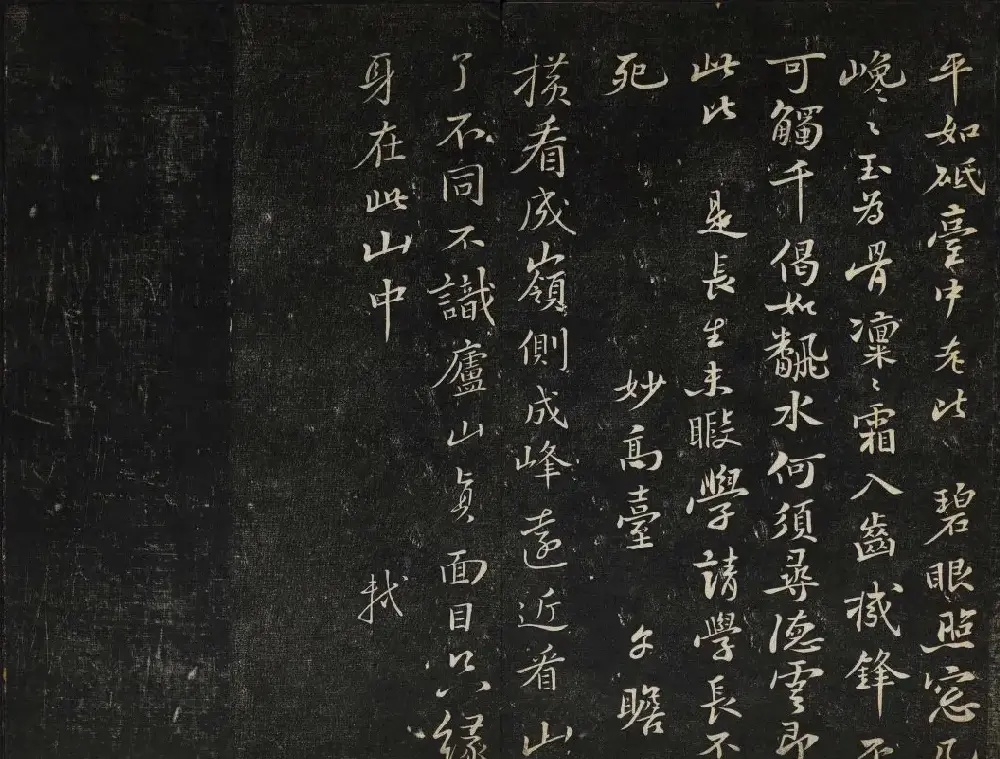 平如砥臺中老比 碧眼照窓几
巉〻玉為骨凜〻霜入齒機鋒不
可觸千偈如飜水何須尋德雲即
此比 是長生未暇學請學長不
死 妙高臺 子瞻
橫看成嶺側成峰遠近看山
了不同不識廬山真面目只緣
身在此山中 軾